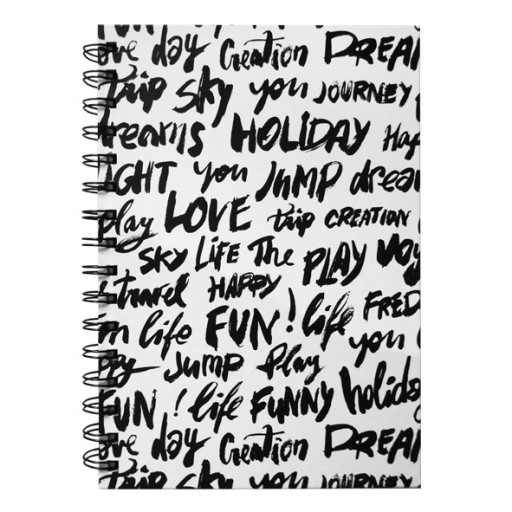 FUNNY holiday
ove day Creation DREAM
Trip SKY you JOURNEY
dreams HOLIDAY Hap
IGHT you JUMP dream
play LOVE trip CREATION
SKY LIFE The PLAY Voy
travel HAPPY
m life FUN! life FRED
you
ppy JUMP Play
FUN! life FUNNY holida
ove day Creation DREA
Trip SKY you JOURNEY